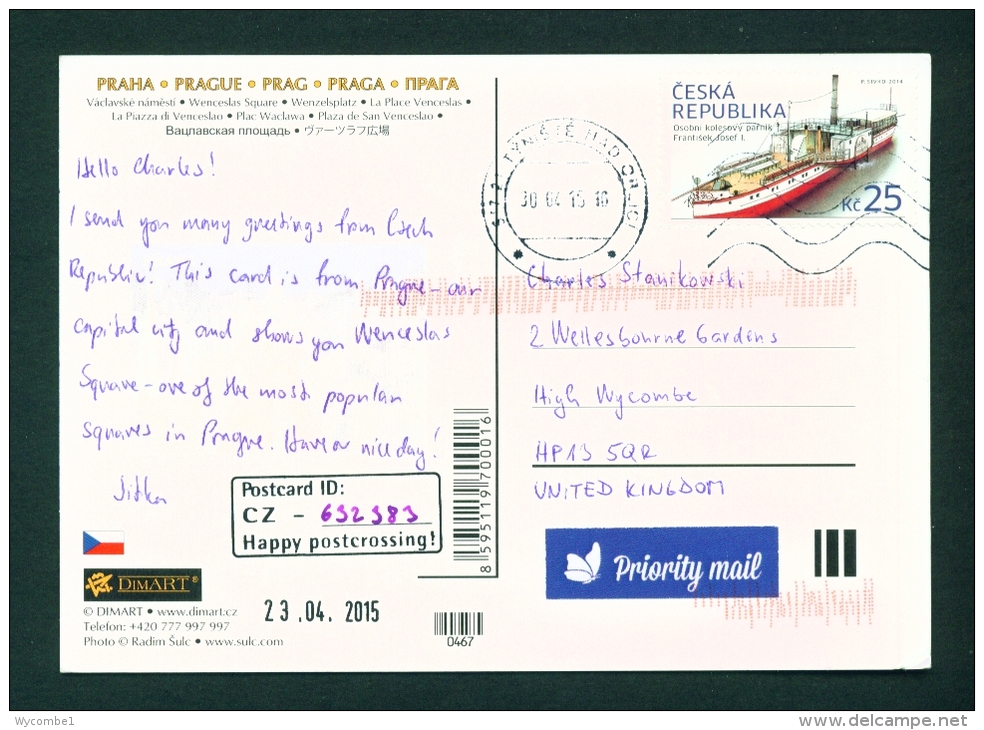 PRAHA • PRAGUE • PRAG • PRAGA • ПРАГА
Václavské náměstí • Wenceslas Square • Wenzelsplatz • La Place Venceslas •
La Piazza di Venceslao • Plac Wacława • Plaza de San Venceslao •
Вацлавская площадь • ヴァーツラフ広場
Hello Charles!
I send you many greetings from Czech
Republic! This card is from Prague - our
capital city and shows you Wenceslas
Square - one of the most popular
squares in Prague. Have a nice day!
Jitka
Postcard ID:
CZ - 632383
Happy postcrossing!
DIMART®
© DIMART • www.dimart.cz
Telefon: +420 777 997 997
Photo © Radim Šulc • www.sulc.com
23.04. 2015
8595119700016
0467
517 2 TÝNIŠTĚ NAD ORLICÍ
30 04 15 16
P. SIVKO 2014
ČESKÁ
REPUBLIKA
Osobní kolesový parník
František Josef I.
Kč 25
Charles Stanikowski
2 Wellesbourne Gardens
High Wycombe
HP13 5QR
UNITED KINGDOM
Priority mail
Wycombe1
delcampe.net